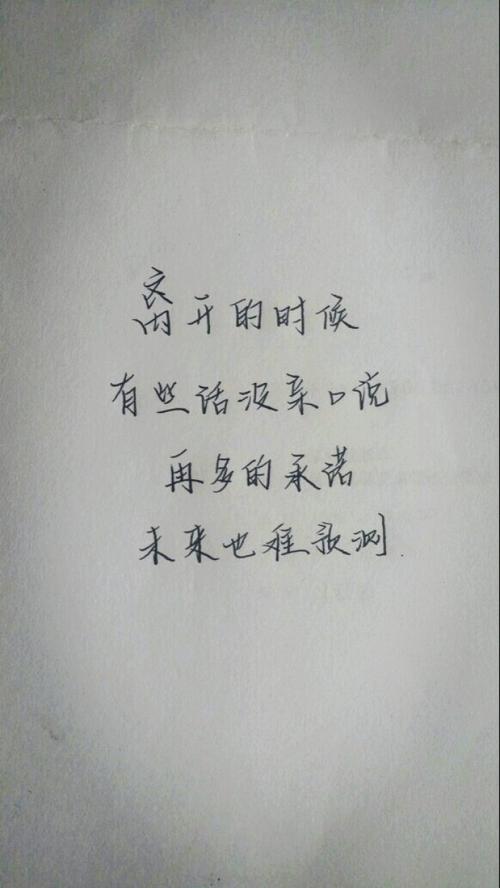 离开的时候
有些话没亲口说
再多的承诺
未来也难预测